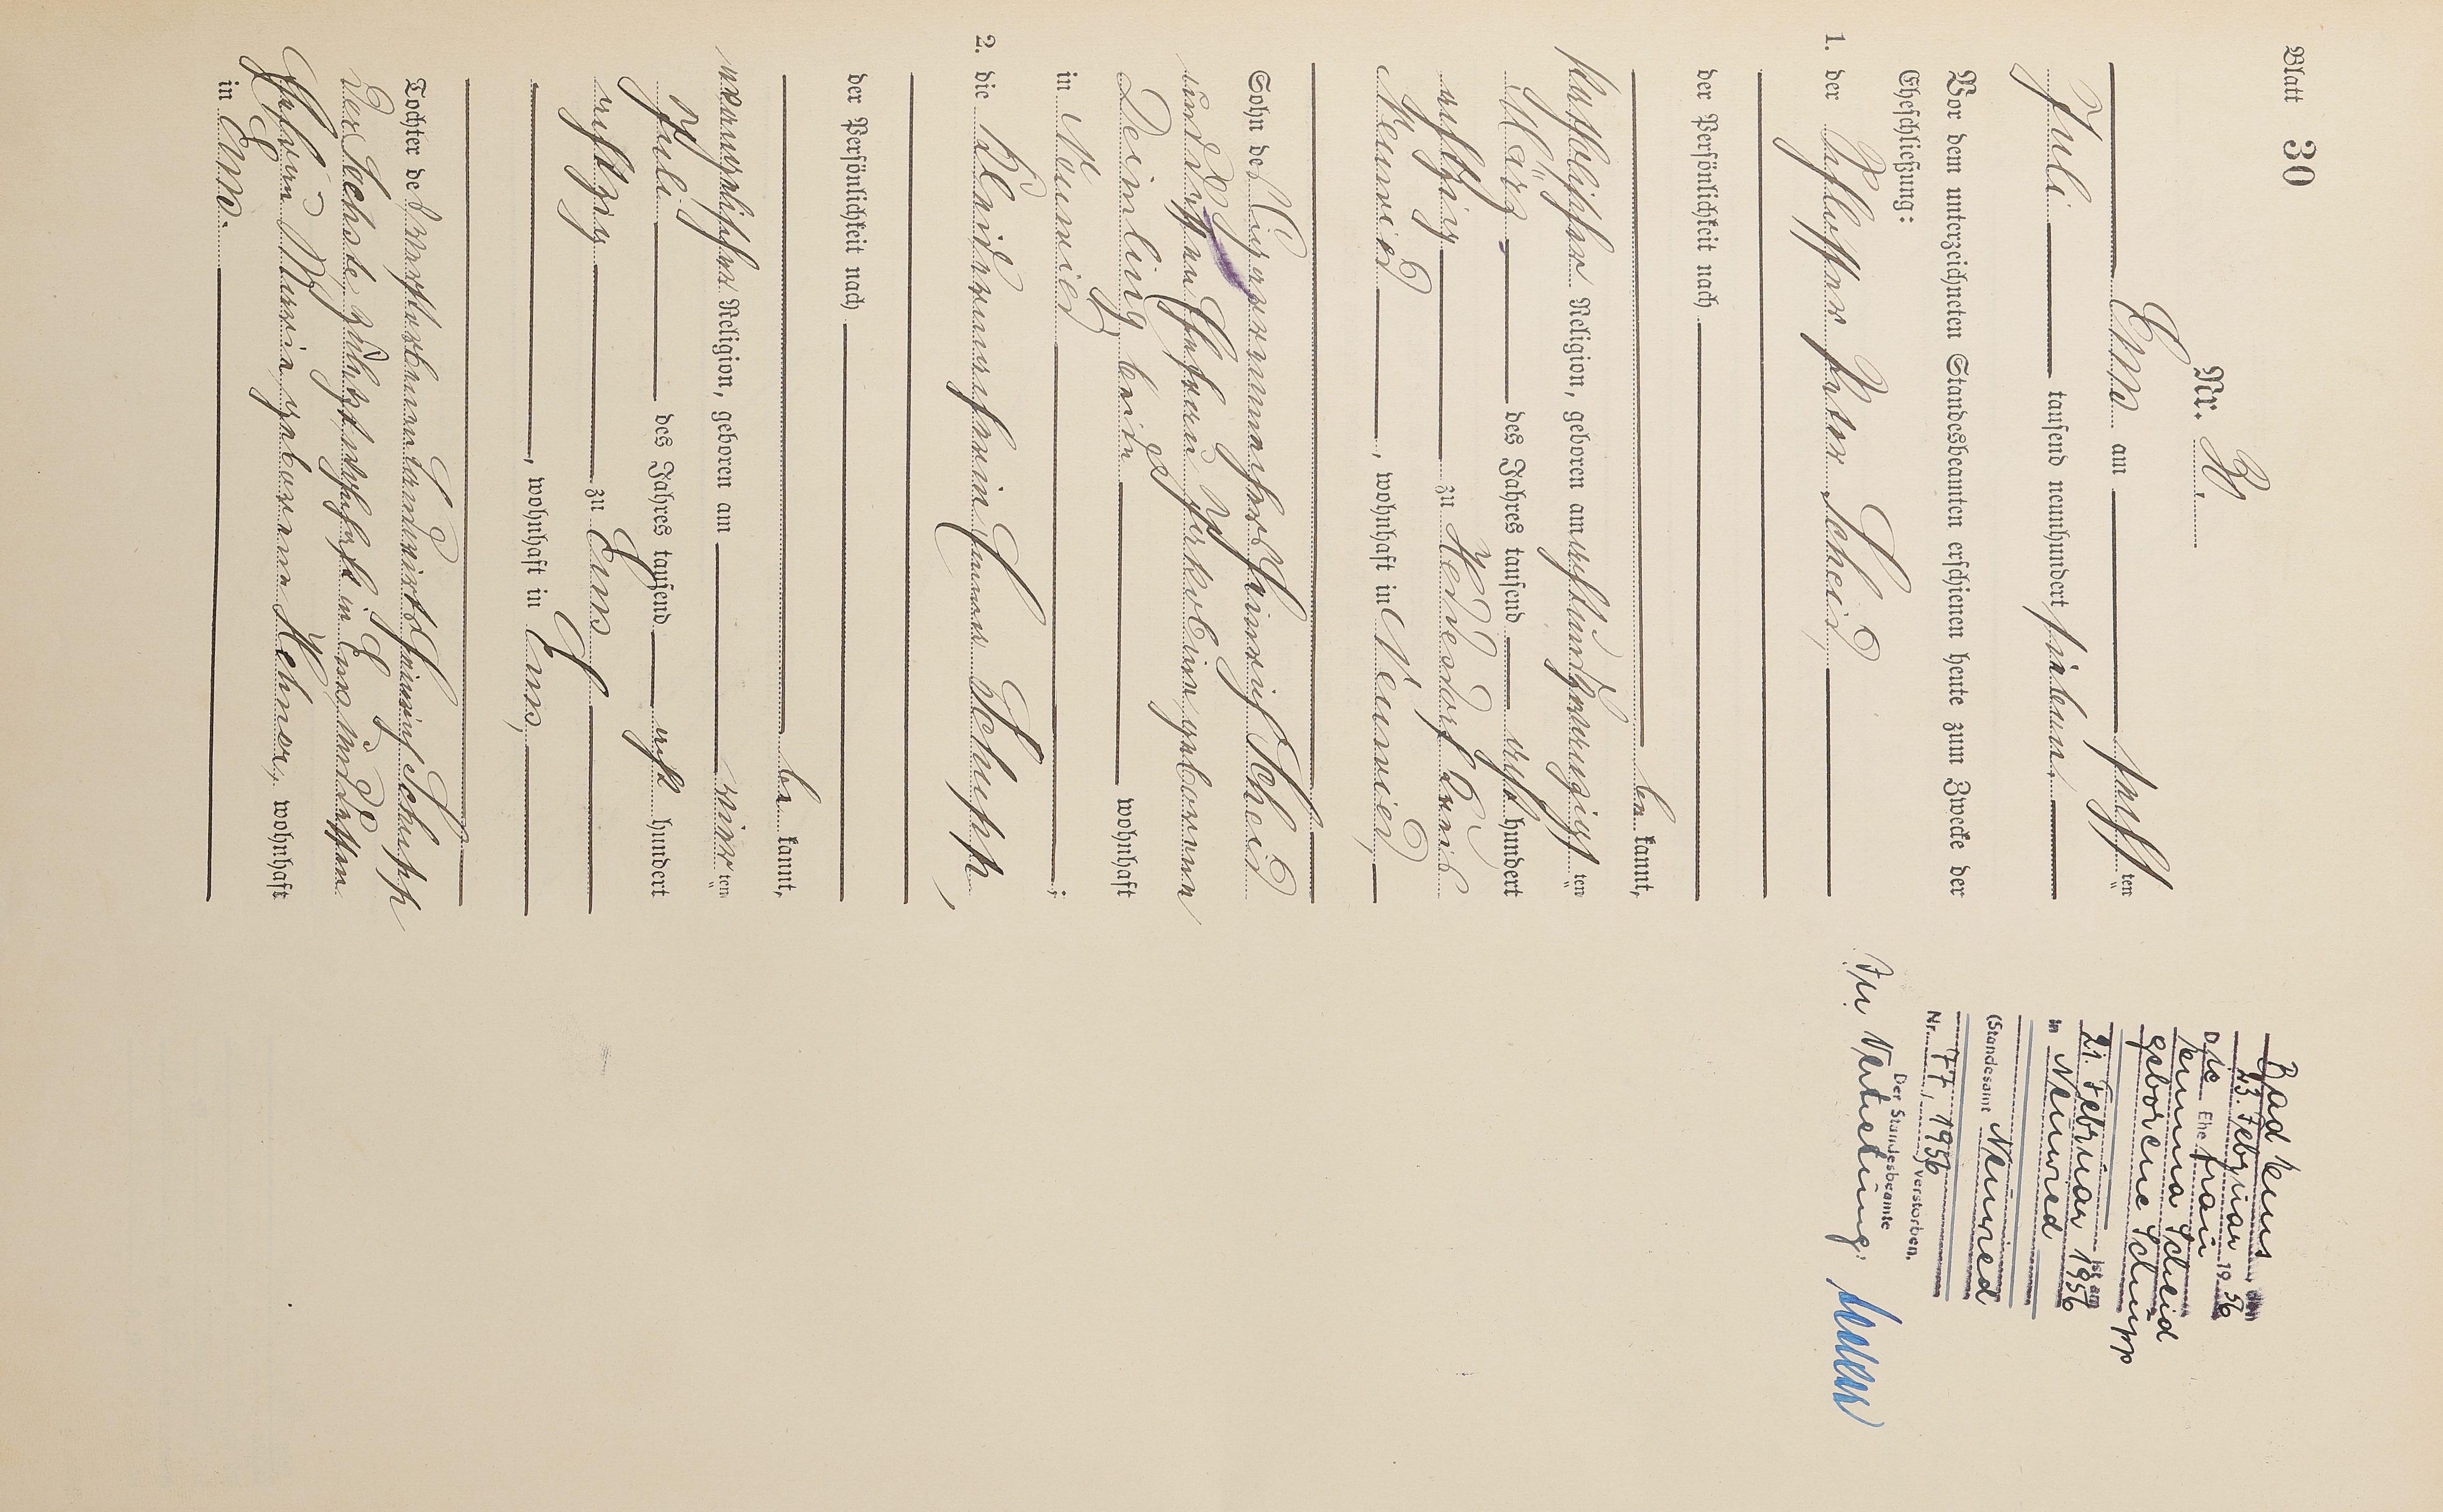 Blatt 30
Nr. 30.
Ems am fünf ten
Juli tausend neunhundert sieben.
Vor dem unterzeichneten Standesbeamten erschienen heute zum Zwecke der
Eheschließung:
1. der Schlosser Peter Scheid
der Persönlichkeit nach
be kannt,
katholischer Religion, geboren am achtundzwanzigst ten
März des Jahres tausend acht hundert
achtzig zu Heddesdorf Kreis
Neuwied, wohnhaft in Neuwied,
Sohn des Heinrich Scheid
und dessen Ehefrau Jakobine geborenen
Deimling beide wohnhaft
in Neuwied;
2. die Kleidermacherin Emma Schupp,
der Persönlichkeit nach
be kannt,
evangelischer Religion, geboren am ten
Juli des Jahres tausend acht hundert
achtzig zu Ems
, wohnhaft in Ems,
Tochter des verstorbenen Landwirts Heinrich Schupp
der Sechste, zuletzt wohnhaft in Ems und dessen
Ehefrau Maria geborene Lehner, wohnhaft
in Ems.
Bad Ems, den
23. Februar 1956
Die Ehefrau
Emma Scheid
geborene Schupp
ist am
21. Februar 1956
in Neuwied
(Standesamt Neuwied
Nr. 77/1956) verstorben.
Der Standesbeamte
In Vertretung: